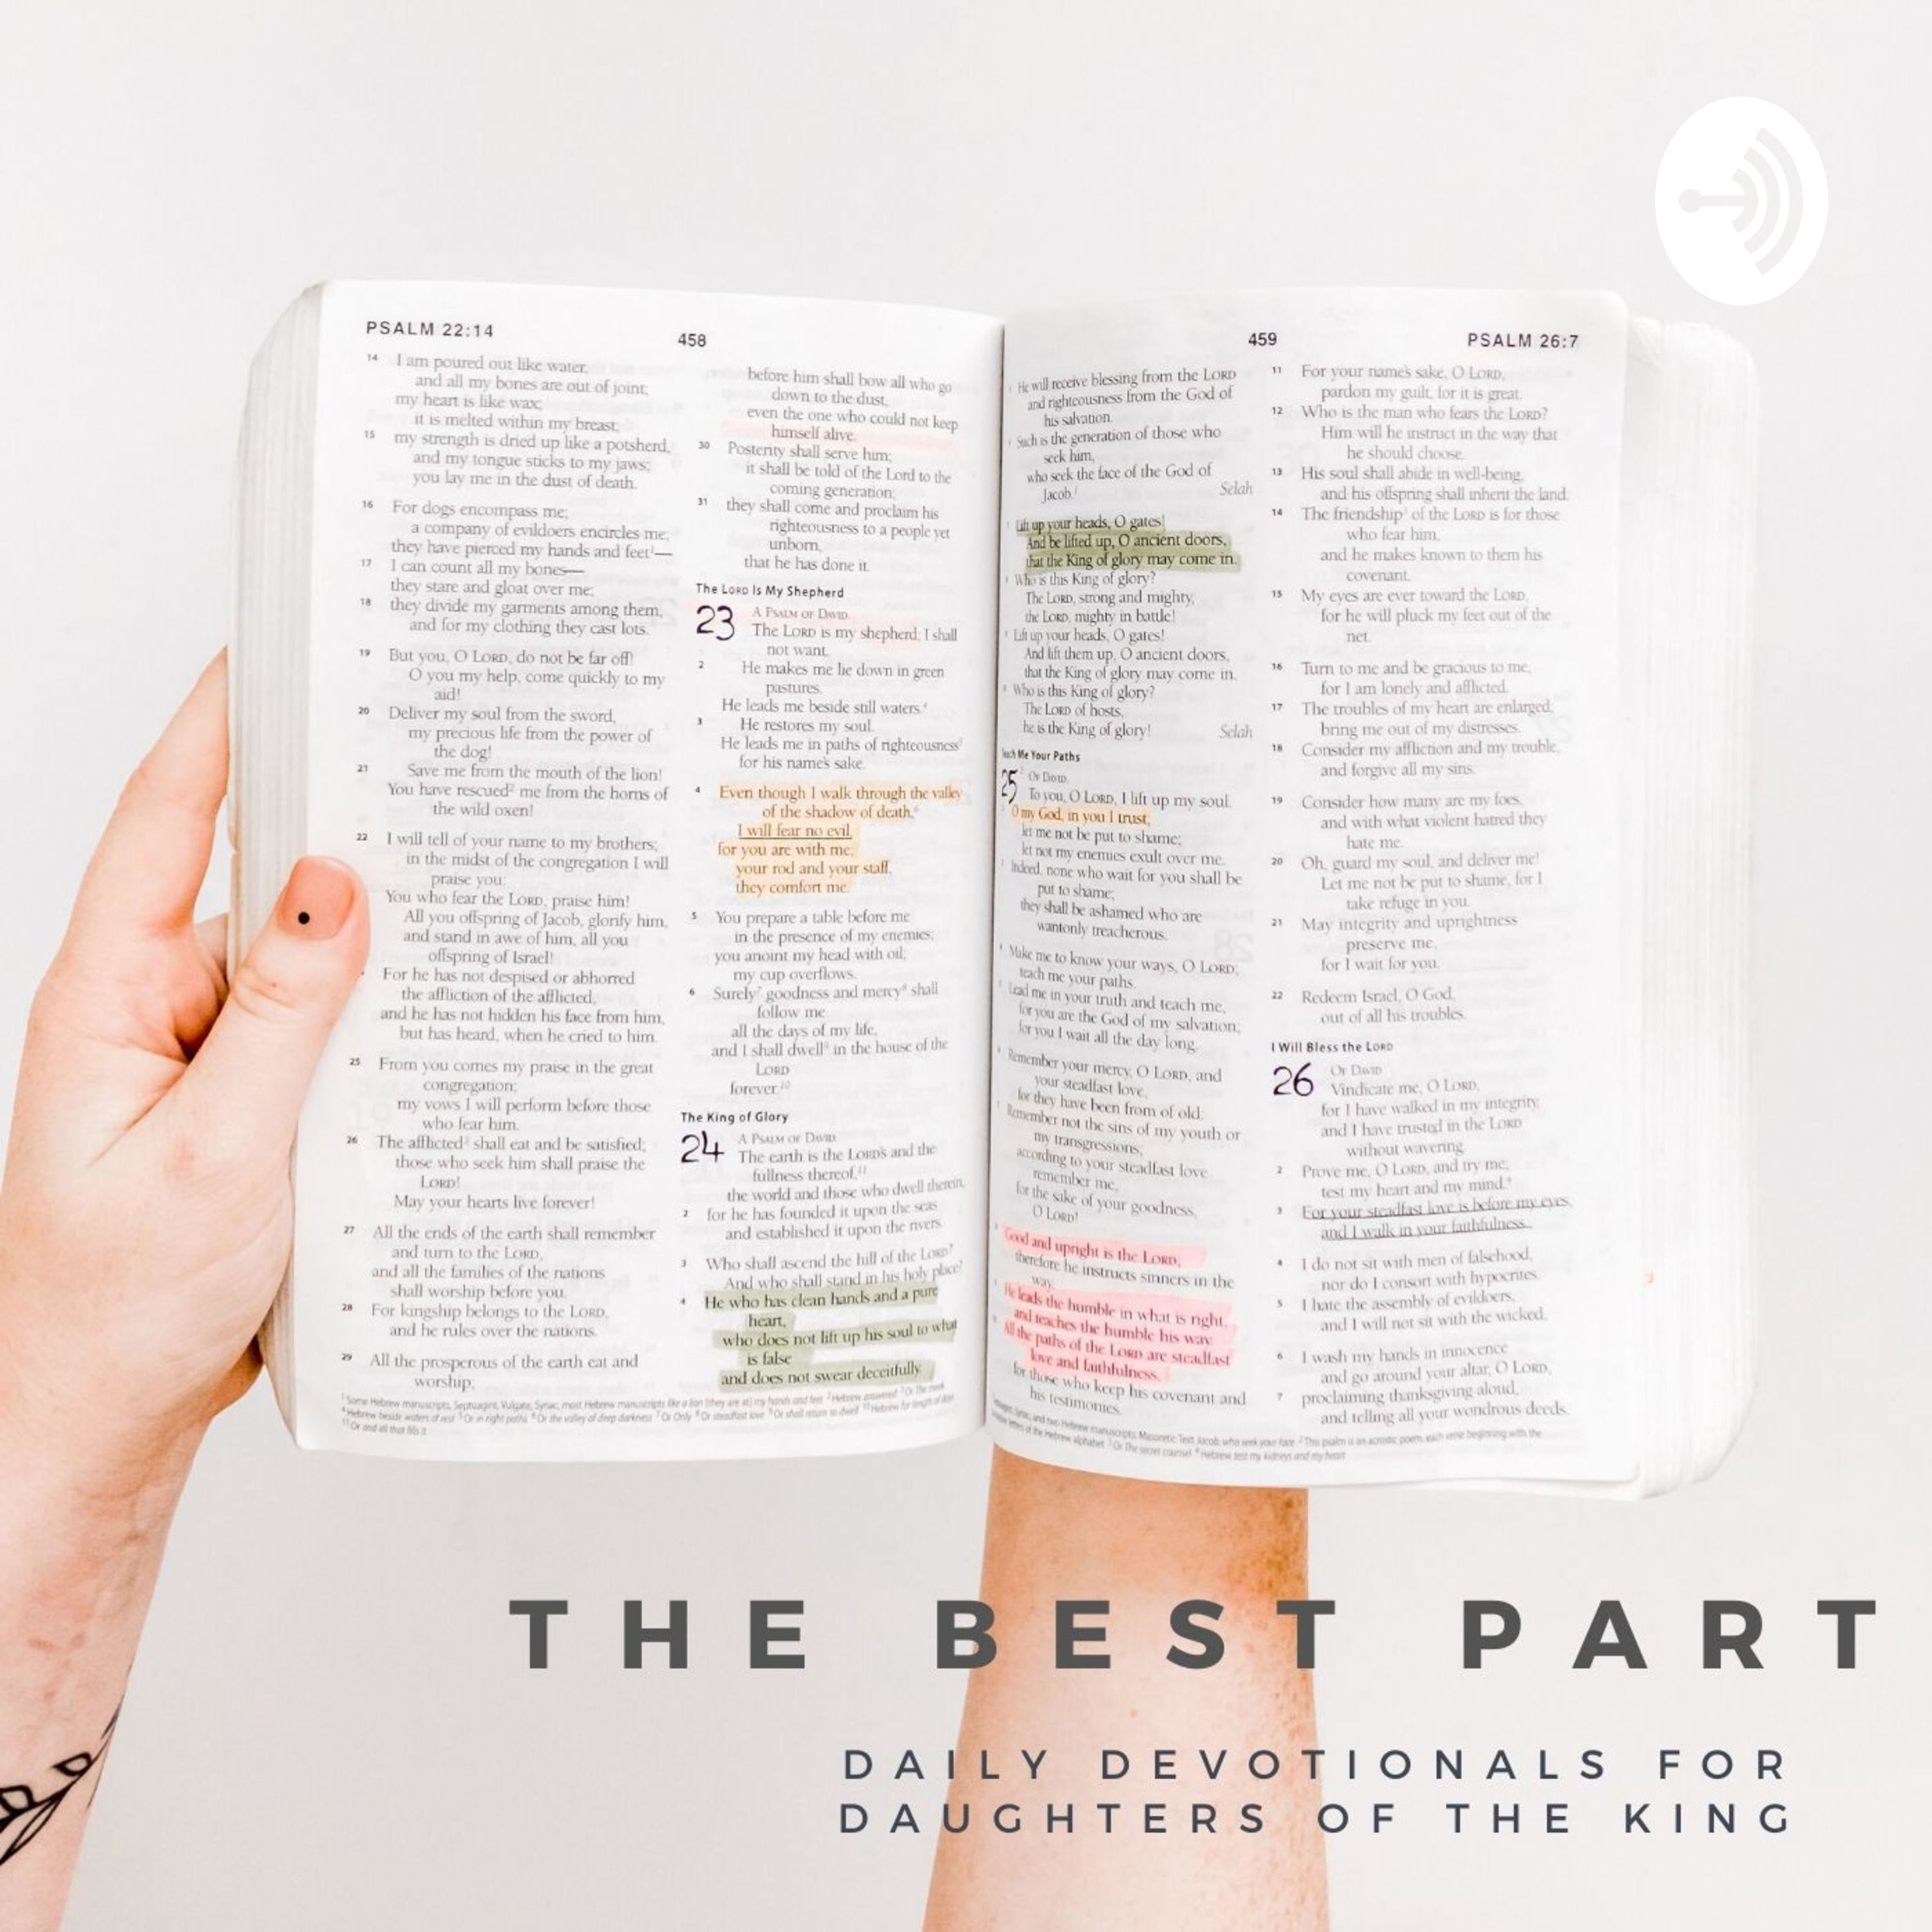 PSALM 22:14
458
14 I am poured out like water,
and all my bones are out of joint;
my heart is like wax;
it is melted within my breast;
15 my strength is dried up like a potsherd,
and my tongue sticks to my jaws;
you lay me in the dust of death.
16 For dogs encompass me;
a company of evildoers encircles me;
they have pierced my hands and feet¹—
17 I can count all my bones—
they stare and gloat over me;
18 they divide my garments among them,
and for my clothing they cast lots.
19 But you, O LORD, do not be far off!
O you my help, come quickly to my
aid!
20 Deliver my soul from the sword,
my precious life from the power of
the dog!
21 Save me from the mouth of the lion!
You have rescued² me from the horns of
the wild oxen!
22 I will tell of your name to my brothers;
in the midst of the congregation I will
praise you:
You who fear the LORD, praise him!
All you offspring of Jacob, glorify him,
and stand in awe of him, all you
offspring of Israel!
For he has not despised or abhorred
the affliction of the afflicted,
and he has not hidden his face from him,
but has heard, when he cried to him.
25 From you comes my praise in the great
congregation;
my vows I will perform before those
who fear him.
26 The afflicted³ shall eat and be satisfied;
those who seek him shall praise the
LORD!
May your hearts live forever!
27 All the ends of the earth shall remember
and turn to the LORD,
and all the families of the nations
shall worship before you.
28 For kingship belongs to the LORD,
and he rules over the nations.
29 All the prosperous of the earth eat and
worship;
before him shall bow all who go
down to the dust,
even the one who could not keep
himself alive.
30 Posterity shall serve him;
it shall be told of the Lord to the
coming generation;
31 they shall come and proclaim his
righteousness to a people yet
unborn,
that he has done it.
The LORD Is My Shepherd
23 A PSALM OF DAVID.
The LORD is my shepherd; I shall
not want.
2 He makes me lie down in green
pastures.
He leads me beside still waters.⁴
3 He restores my soul.
He leads me in paths of righteousness⁵
for his name's sake.
4 Even though I walk through the valley
of the shadow of death,⁶
I will fear no evil,
for you are with me;
your rod and your staff,
they comfort me.
5 You prepare a table before me
in the presence of my enemies;
you anoint my head with oil;
my cup overflows.
6 Surely⁷ goodness and mercy⁸ shall
follow me
all the days of my life,
and I shall dwell⁹ in the house of the
LORD
forever.¹⁰
The King of Glory
24 A PSALM OF DAVID.
The earth is the LORD's and the
fullness thereof,¹¹
the world and those who dwell therein,
2 for he has founded it upon the seas
and established it upon the rivers.
3 Who shall ascend the hill of the LORD?
And who shall stand in his holy place?
4 He who has clean hands and a pure
heart,
who does not lift up his soul to what
is false
and does not swear deceitfully.
¹ Some Hebrew manuscripts, Septuagint, Vulgate, Syriac; most Hebrew manuscripts like a lion [they are at] my hands and feet ² Hebrew answered ³ Or The meek
⁴ Hebrew beside waters of rest ⁵ Or in right paths ⁶ Or the valley of deep darkness ⁷ Or Only ⁸ Or steadfast love ⁹ Or shall return to dwell ¹⁰ Hebrew for length of days
¹¹ Or and all that fills it
459
PSALM 26:7
He will receive blessing from the LORD
and righteousness from the God of
his salvation.
Such is the generation of those who
seek him,
who seek the face of the God of
Jacob.¹ Selah
Lift up your heads, O gates!
And be lifted up, O ancient doors,
that the King of glory may come in.
Who is this King of glory?
The LORD, strong and mighty,
the LORD, mighty in battle!
Lift up your heads, O gates!
And lift them up, O ancient doors,
that the King of glory may come in.
Who is this King of glory?
The LORD of hosts,
he is the King of glory! Selah
Teach Me Your Paths
25 ² OF DAVID.
To you, O LORD, I lift up my soul.
O my God, in you I trust;
let me not be put to shame;
let not my enemies exult over me.
Indeed, none who wait for you shall be
put to shame;
they shall be ashamed who are
wantonly treacherous.
Make me to know your ways, O LORD;
teach me your paths.
Lead me in your truth and teach me,
for you are the God of my salvation;
for you I wait all the day long.
Remember your mercy, O LORD, and
your steadfast love,
for they have been from of old.
Remember not the sins of my youth or
my transgressions;
according to your steadfast love
remember me,
for the sake of your goodness,
O LORD!
Good and upright is the LORD;
therefore he instructs sinners in the
way.
He leads the humble in what is right,
and teaches the humble his way.
All the paths of the LORD are steadfast
love and faithfulness,
for those who keep his covenant and
his testimonies.
11 For your name's sake, O LORD,
pardon my guilt, for it is great.
12 Who is the man who fears the LORD?
Him will he instruct in the way that
he should choose.
13 His soul shall abide in well-being,
and his offspring shall inherit the land.
14 The friendship³ of the LORD is for those
who fear him,
and he makes known to them his
covenant.
15 My eyes are ever toward the LORD,
for he will pluck my feet out of the
net.
16 Turn to me and be gracious to me,
for I am lonely and afflicted.
17 The troubles of my heart are enlarged;
bring me out of my distresses.
18 Consider my affliction and my trouble,
and forgive all my sins.
19 Consider how many are my foes,
and with what violent hatred they
hate me.
20 Oh, guard my soul, and deliver me!
Let me not be put to shame, for I
take refuge in you.
21 May integrity and uprightness
preserve me,
for I wait for you.
22 Redeem Israel, O God,
out of all his troubles.
I Will Bless the LORD
26 OF DAVID.
Vindicate me, O LORD,
for I have walked in my integrity,
and I have trusted in the LORD
without wavering.
2 Prove me, O LORD, and try me;
test my heart and my mind.⁴
3 For your steadfast love is before my eyes,
and I walk in your faithfulness.
4 I do not sit with men of falsehood,
nor do I consort with hypocrites.
5 I hate the assembly of evildoers,
and I will not sit with the wicked.
6 I wash my hands in innocence
and go around your altar, O LORD,
7 proclaiming thanksgiving aloud,
and telling all your wondrous deeds.
Syriac, and two Hebrew manuscripts; Masoretic Text Jacob, who seek your face ² This psalm is an acrostic poem, each verse beginning with the
letters of the Hebrew alphabet ³ Or The secret counsel ⁴ Hebrew test my kidneys and my heart
THE BEST PART
DAILY DEVOTIONALS FOR
DAUGHTERS OF THE KING